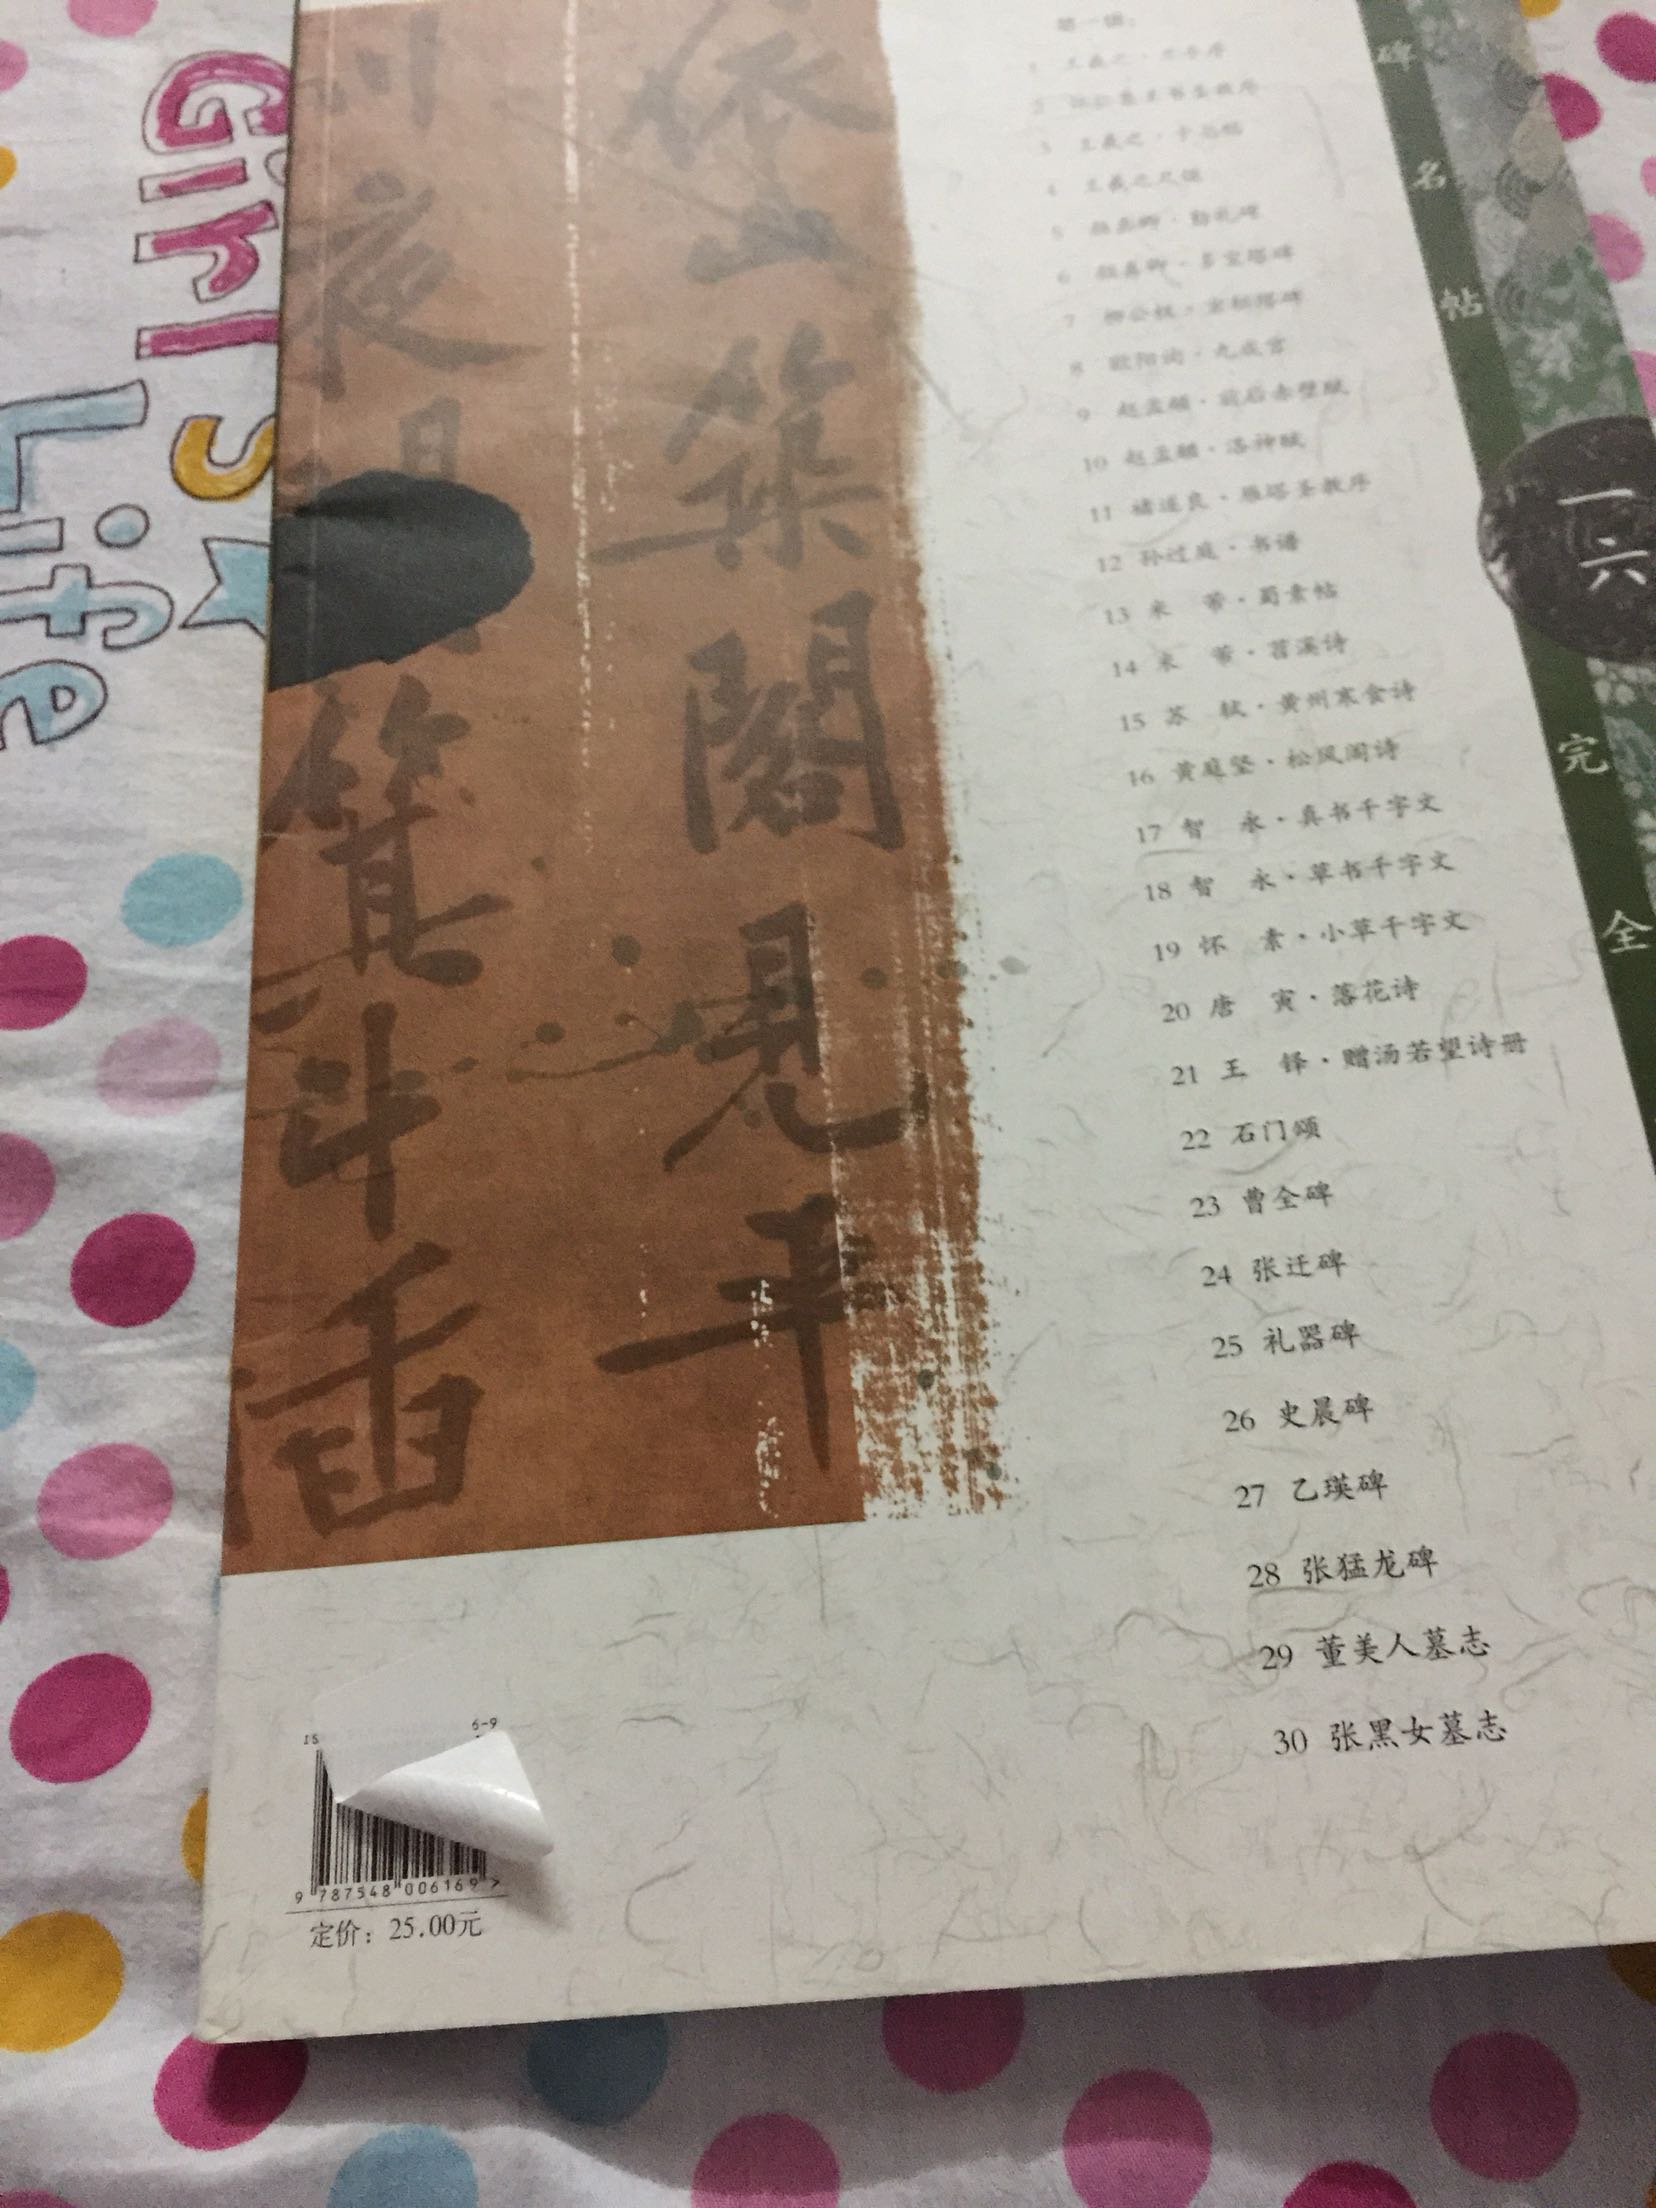 Girl's
Life
依山築閣見平
川夜闌箕斗插
第一辑:
1 王羲之·兰亭序
2 怀仁集王书圣教序
3 王羲之·十七帖
4 王羲之尺牍
5 颜真卿·勤礼碑
6 颜真卿·多宝塔碑
7 柳公权·玄秘塔碑
8 欧阳询·九成宫
9 赵孟頫·前后赤壁赋
10 赵孟頫·洛神赋
11 褚遂良·雁塔圣教序
12 孙过庭·书谱
13 米 芾·蜀素帖
14 米 芾·苕溪诗
15 苏 轼·黄州寒食诗
16 黄庭坚·松风阁诗
17 智 永·真书千字文
18 智 永·草书千字文
19 怀 素·小草千字文
20 唐 寅·落花诗
21 王 铎·赠汤若望诗册
22 石门颂
23 曹全碑
24 张迁碑
25 礼器碑
26 史晨碑
27 乙瑛碑
28 张猛龙碑
29 董美人墓志
30 张黑女墓志
碑名帖
一六
完全
IS 6-9
9 787548 006169 >
定价：25.00元